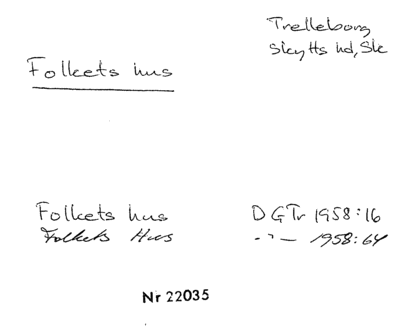 Trelleborg
Skytts hd, Sk
Folkets hus
Folkets hus DGTr 1958:16
Folkets Hus -"- 1958:64
Nr 22035